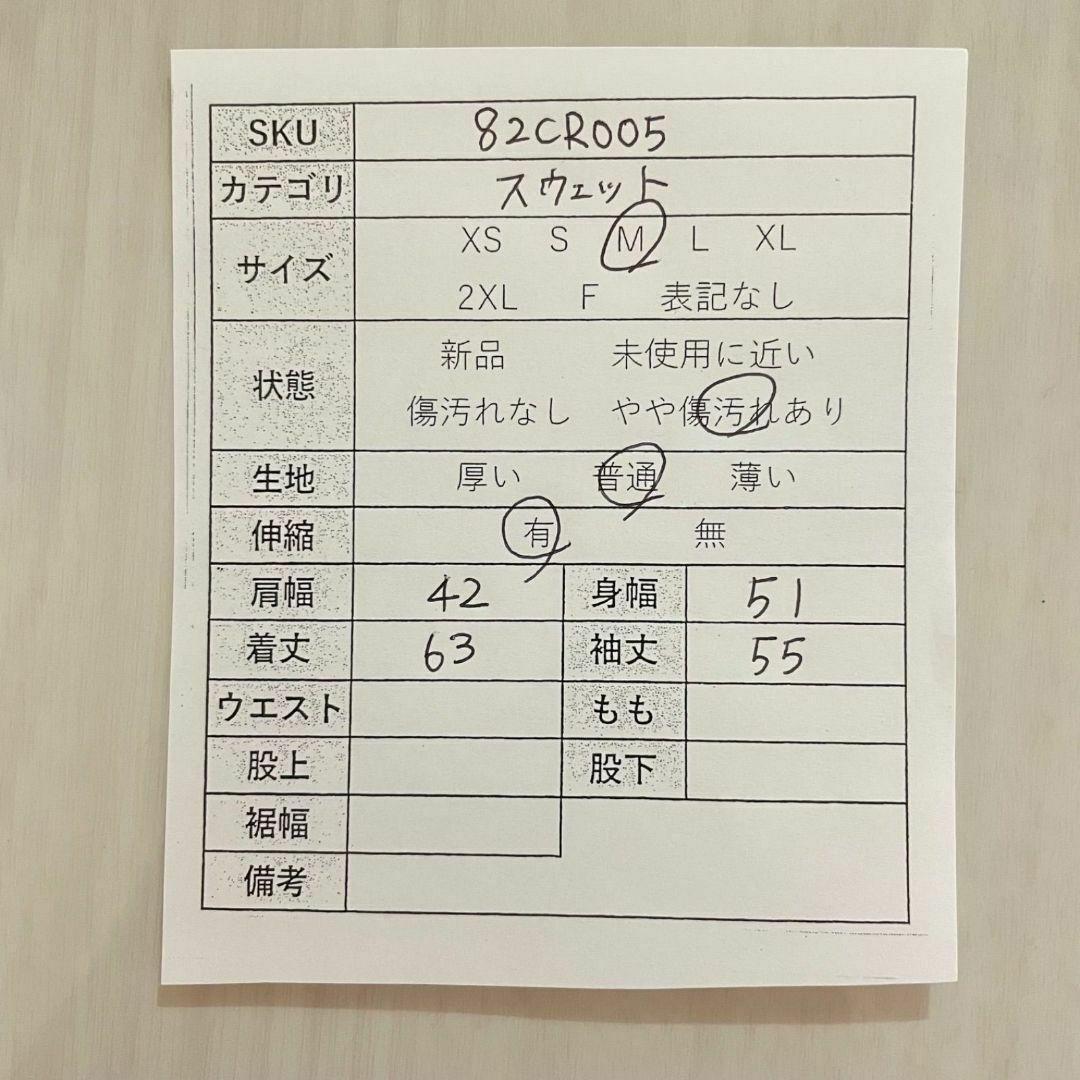 SKU 82CR005
カテゴリ スウェット
サイズ XS S M L XL
2XL F 表記なし
状態 新品 未使用に近い
傷汚れなし やや傷汚れあり
生地 厚い 普通 薄い
伸縮 有 無
肩幅 42 身幅 51
着丈 63 袖丈 55
ウエスト もも
股上 股下
裾幅
備考